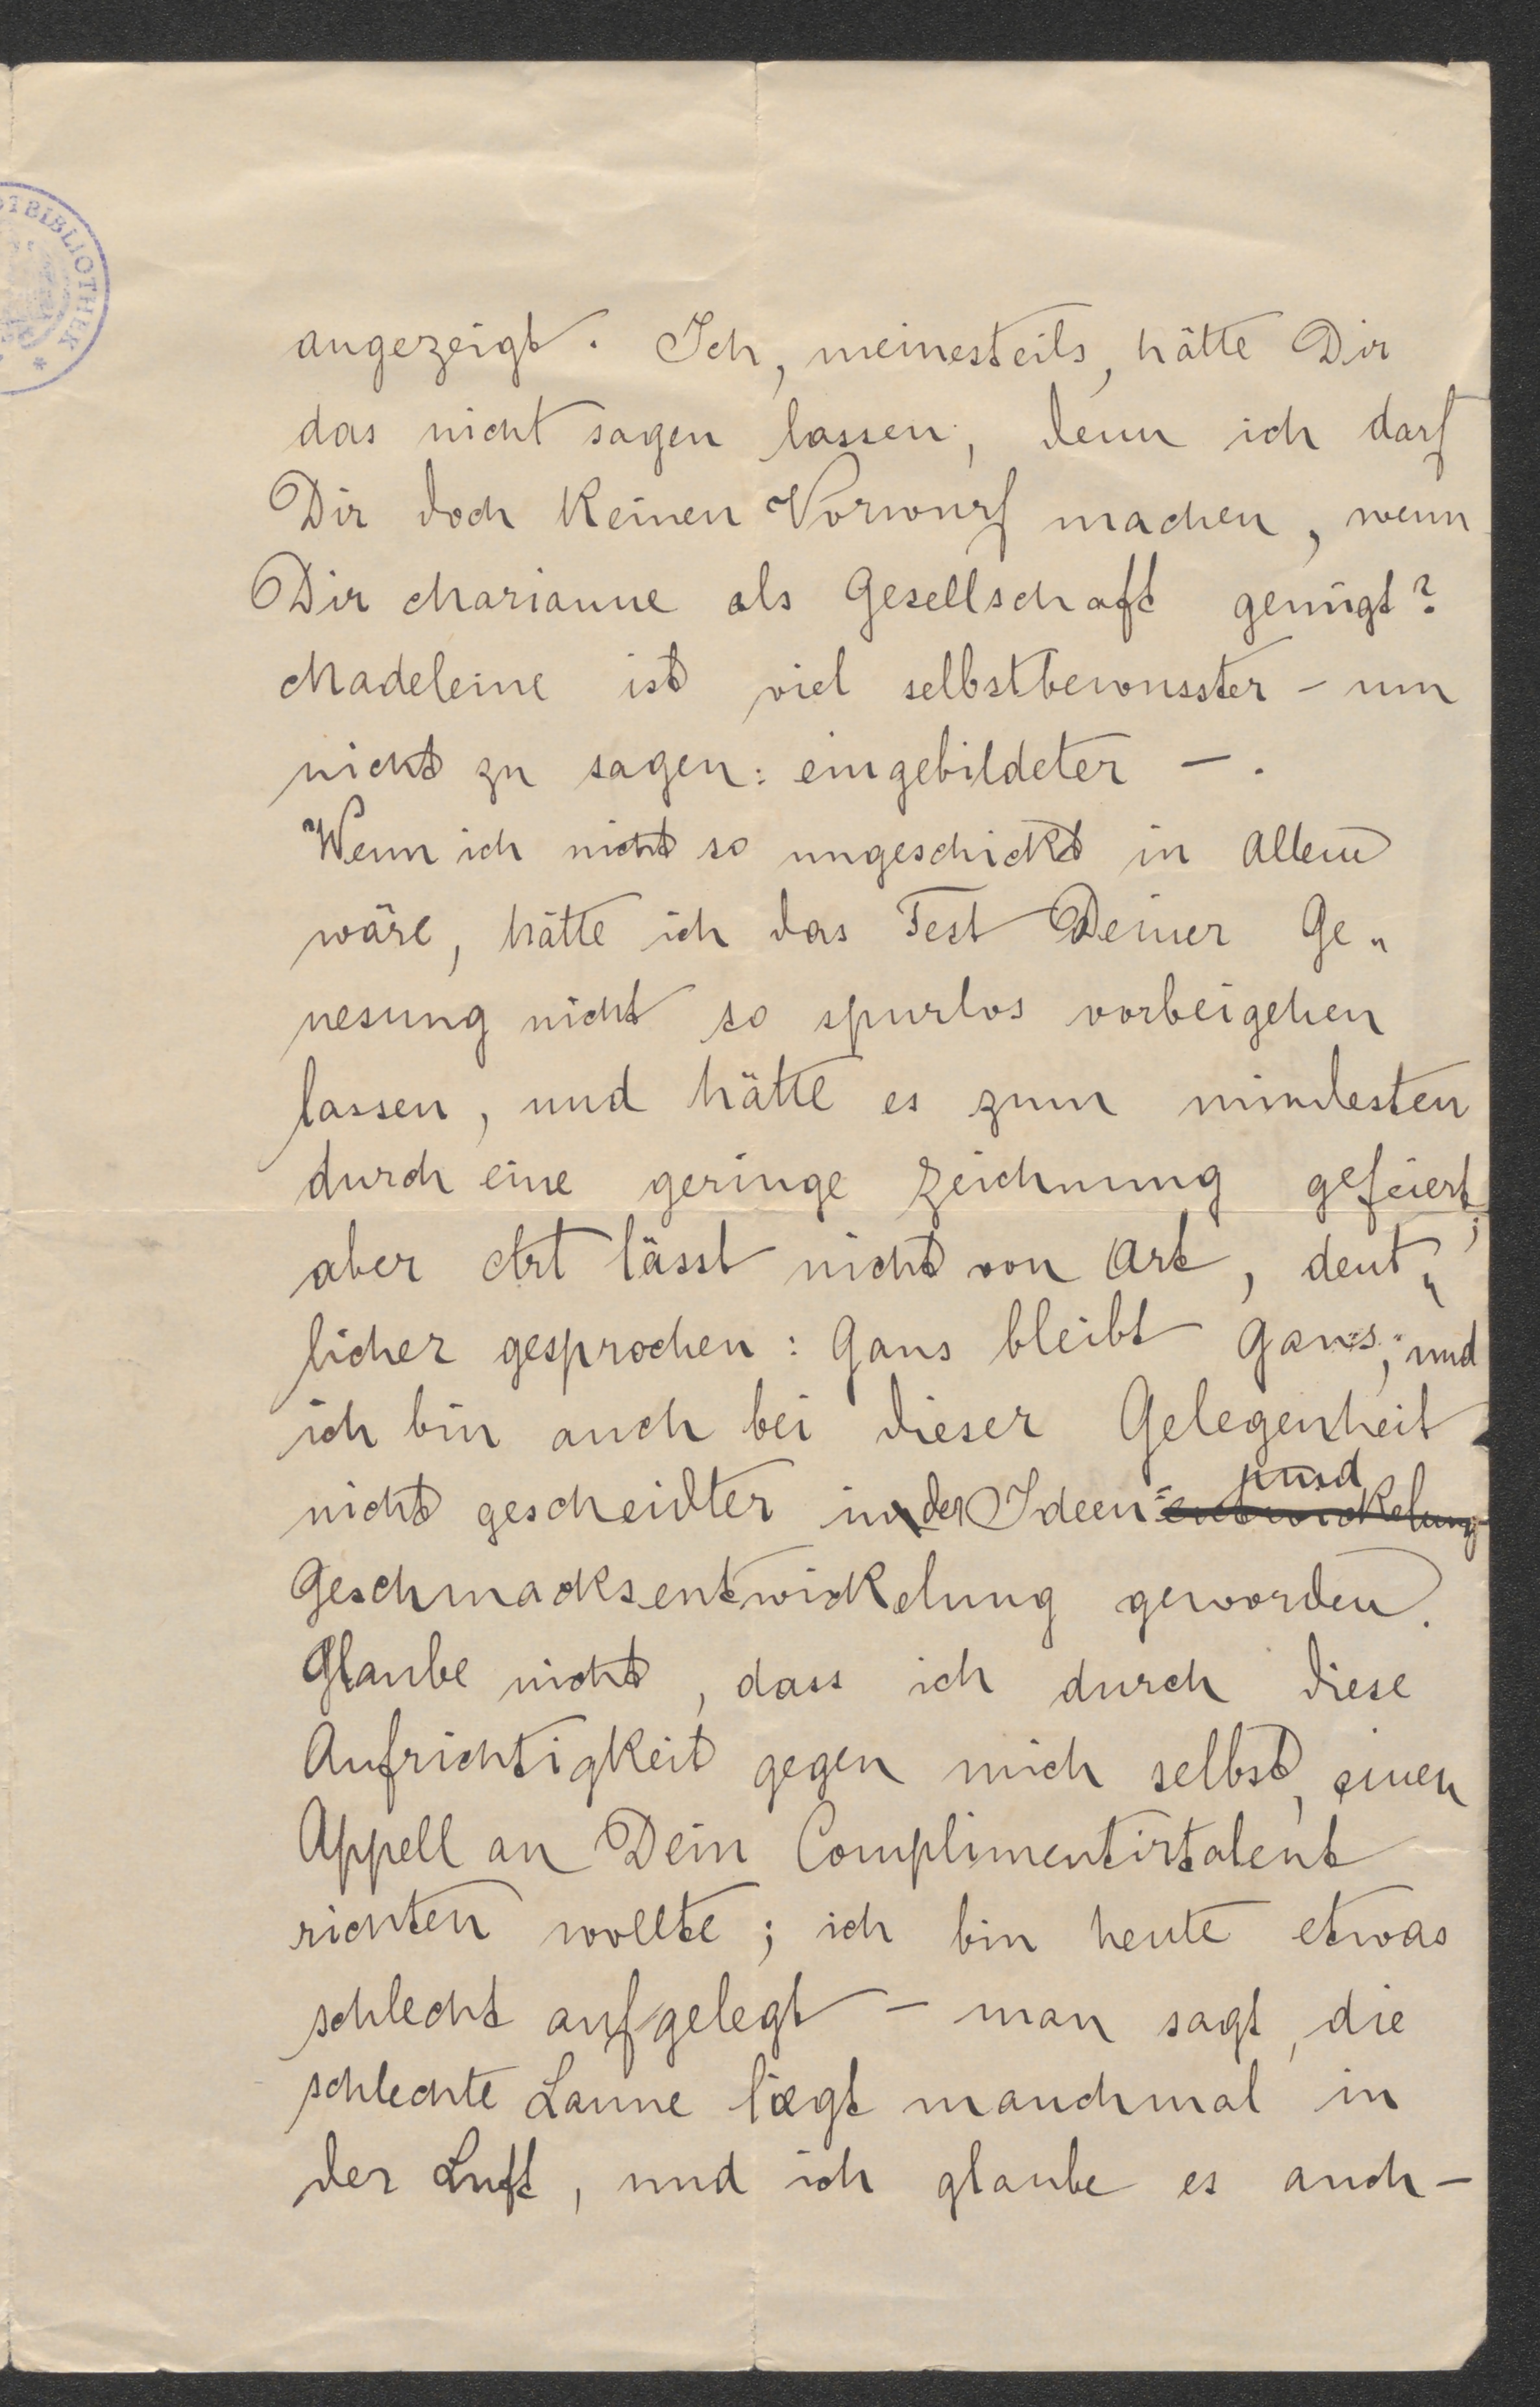 angezeigt. Ich, meinesteils, hätte Dir
das nicht sagen lassen, denn ich darf
Dir doch keinen Vorwurf machen, wenn
Dir Marianne als Gesellschaft genügt?
Madeleine ist viel selbstbewusster – um
nicht zu sagen: eingebildeter –.
Wenn ich nicht so ungeschickt in Allem
wäre, hätte ich das Fest Deiner Ge„
nesung nicht so spurlos vorbeigehen
lassen, und hätte es zum mindesten
durch eine geringe Zeichnung gefeiert;
aber Art lässt nicht von Art, deut„
licher gesprochen: Gans bleibt Gans; und
ich bin auch bei dieser Gelegenheit
nicht gescheidter in der Ideen= entwickelung und
Geschmacksentwickelung geworden.
Glaube nicht, dass ich durch diese
Aufrichtigkeit gegen mich selbst, einen
Appell an Dein Complimentirtalent
richten wollte; ich bin heute etwas
schlecht aufgelegt – man sagt, die
schlechte Laune liegt manchmal in
der Luft, und ich glaube es auch –
TBIBLIOTHEK *